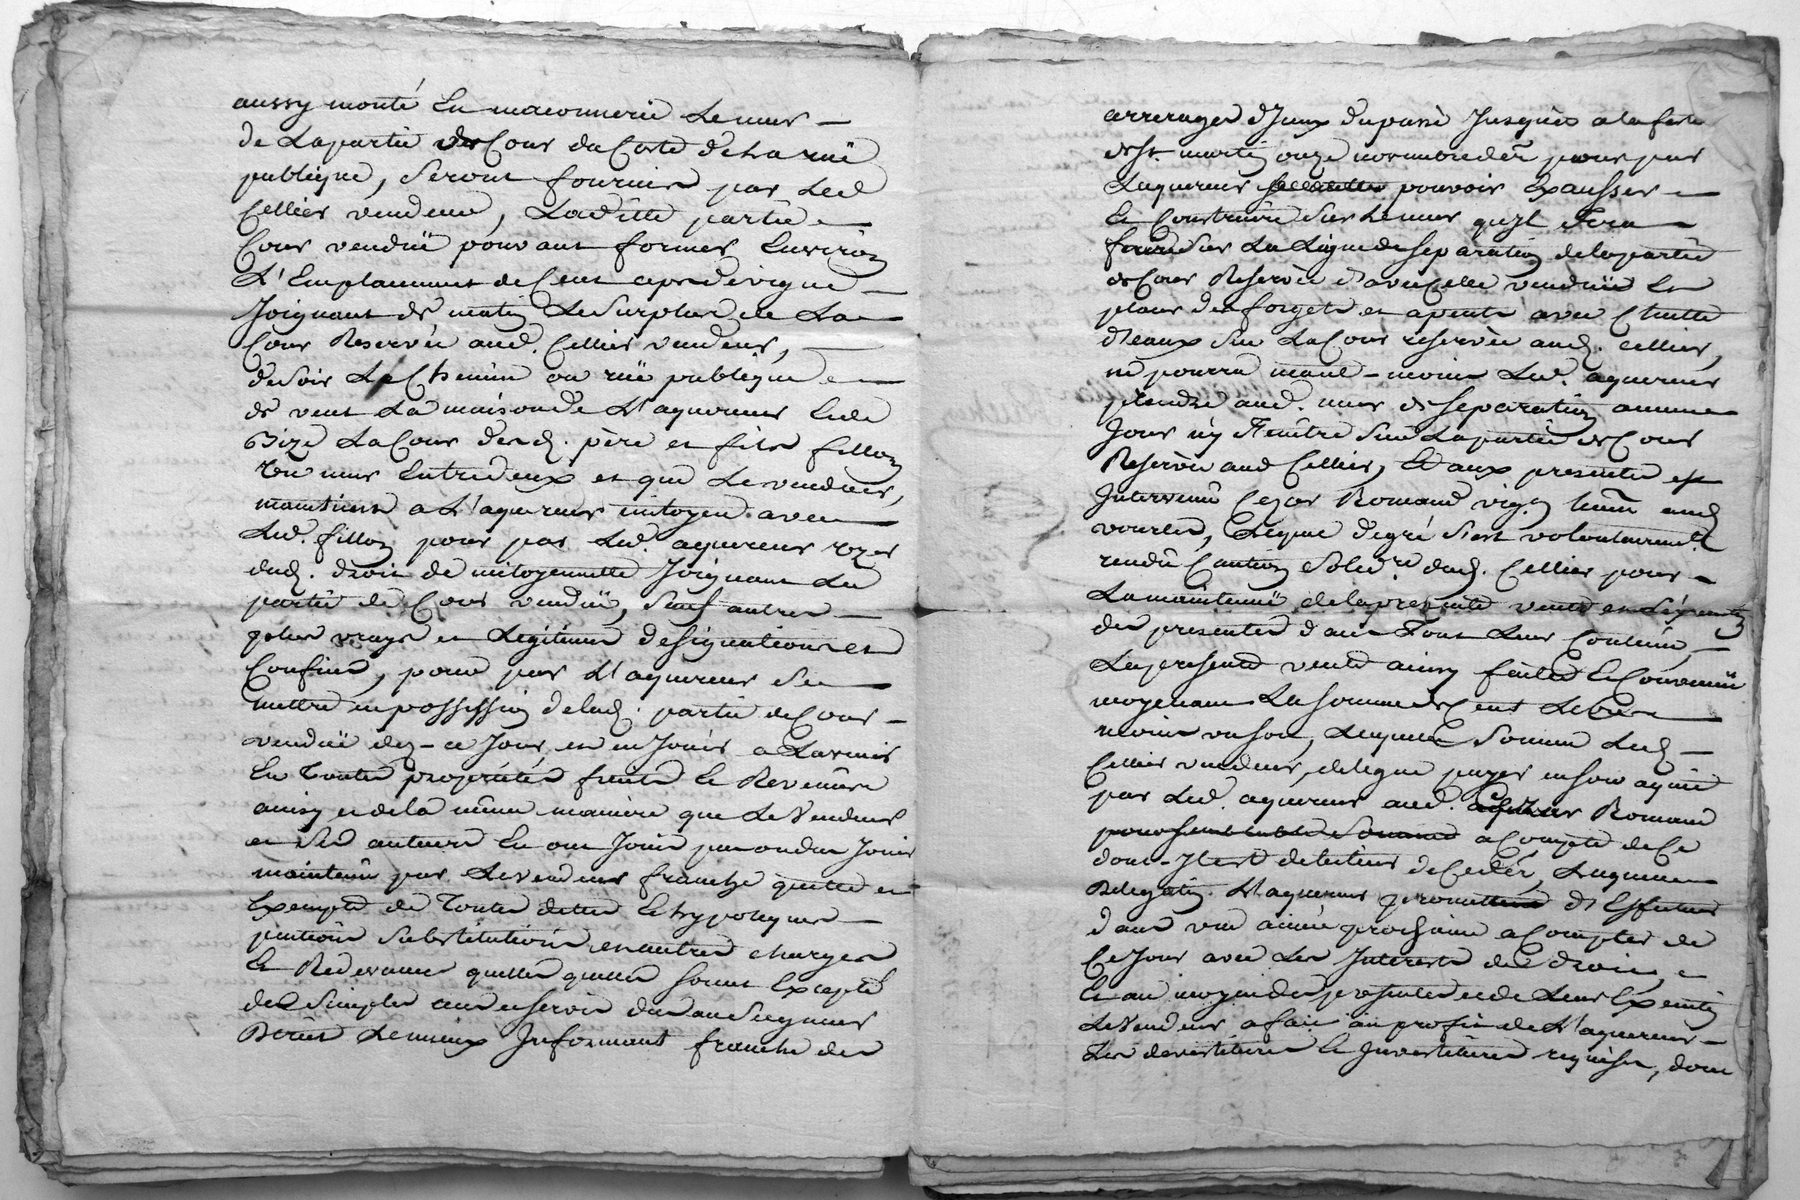 aussy monté En maconnerie Le mur
de Lapartie de Cour du Costé de La rüe
publique, Seront fournies par Led
Cellier vendeur, Laditte partie
Cour vendüe pouvant former Environ
L'Emplacement de Cent ceps de vigne
Joignant de matin Le Surplus de La
Cour Reservée aud. Cellier vendeur,
de Soir Le Chemin ou rüe publique
de vent La maison de L'aquereur Et de
Bize La Cour desd. père et fils fillon
un mur Entredeux et que Le vendeur,
maintient a L'aquereur mitoyen avec
Led. fillon pour par Led. aquereur
dud. droit de mitoyennette Joignant La
partie de Cour vendüe, Sauf autres
plus vrays et Legitimes designations et
Confins, pour par L'aquereur Se
mettre en possession de lad. partie de Cour
vendüe dez-ce Jour et en Jouir a Lavenir
En Toutes proprietés fruits Et Revenus
ainsy et de la même maniere que Le Vendeur
et Ses auteurs En ont Jouis pu ou du Jouir
maintenüe par Le vendeur franche quitte et
Exempte de Toutes dettes Et hypoteques
pentions Substitutions et autres charges
Et Redevances quelles quelles Soient Excepté
des Simples cens et servis dus au Seigneur
Direct Le mieux Informant franche des
arrerages d'Jceux du passé Jusques a la feste
de St. martin onze novembre der pour par
Laquereur pouvoir Exausser
Et Construire Sur Le mur qu'Jl Fera
faire Sur La Ligne de Separation de la partie
de Cour Reservée d'avec Celle vendüe Et
placer des forgets et apents avec Chutte
d'eaux Sur La Cour reservée aud. Cellier,
ne pourra neant-moins Led. aquereur
prendre aud. mur de Separation aucuns
Jour ny Fenêtre Sur La partie de Cour
Reservée aud Cellier, Et aux presentes est
Intervenû Cezar Romand vig.on aud
vourles, Lequel de gré S'est volontairemt
rendû Caution Solid.re dud. Cellier pour
La maintenüe de la presente vente et L'éxecution
des presentes dans Tout Leur Contenû,
La presente vente ainsy faitte Et Convenüe
moyenant La Somme de Cent Livres
moins un sol, Laquelle Somme Led
Cellier vendeur, delegue payer en son aquit
par Led. aquereur aud. Cezar Romand
pour semblable Somme a Compte de Ce
dont-Jl est debiteur de Ce der, Laquelle
Delegation L'aquereur promet d'Effectuer
dans une année prochaine a Compter de
Ce Jour avec Les Interests de droit
Et au moyen des presentes et de Leur Exemtion
Le Vendeur a fait au profit de L'aquereur
Les devestitures Et Investitures requises, dont